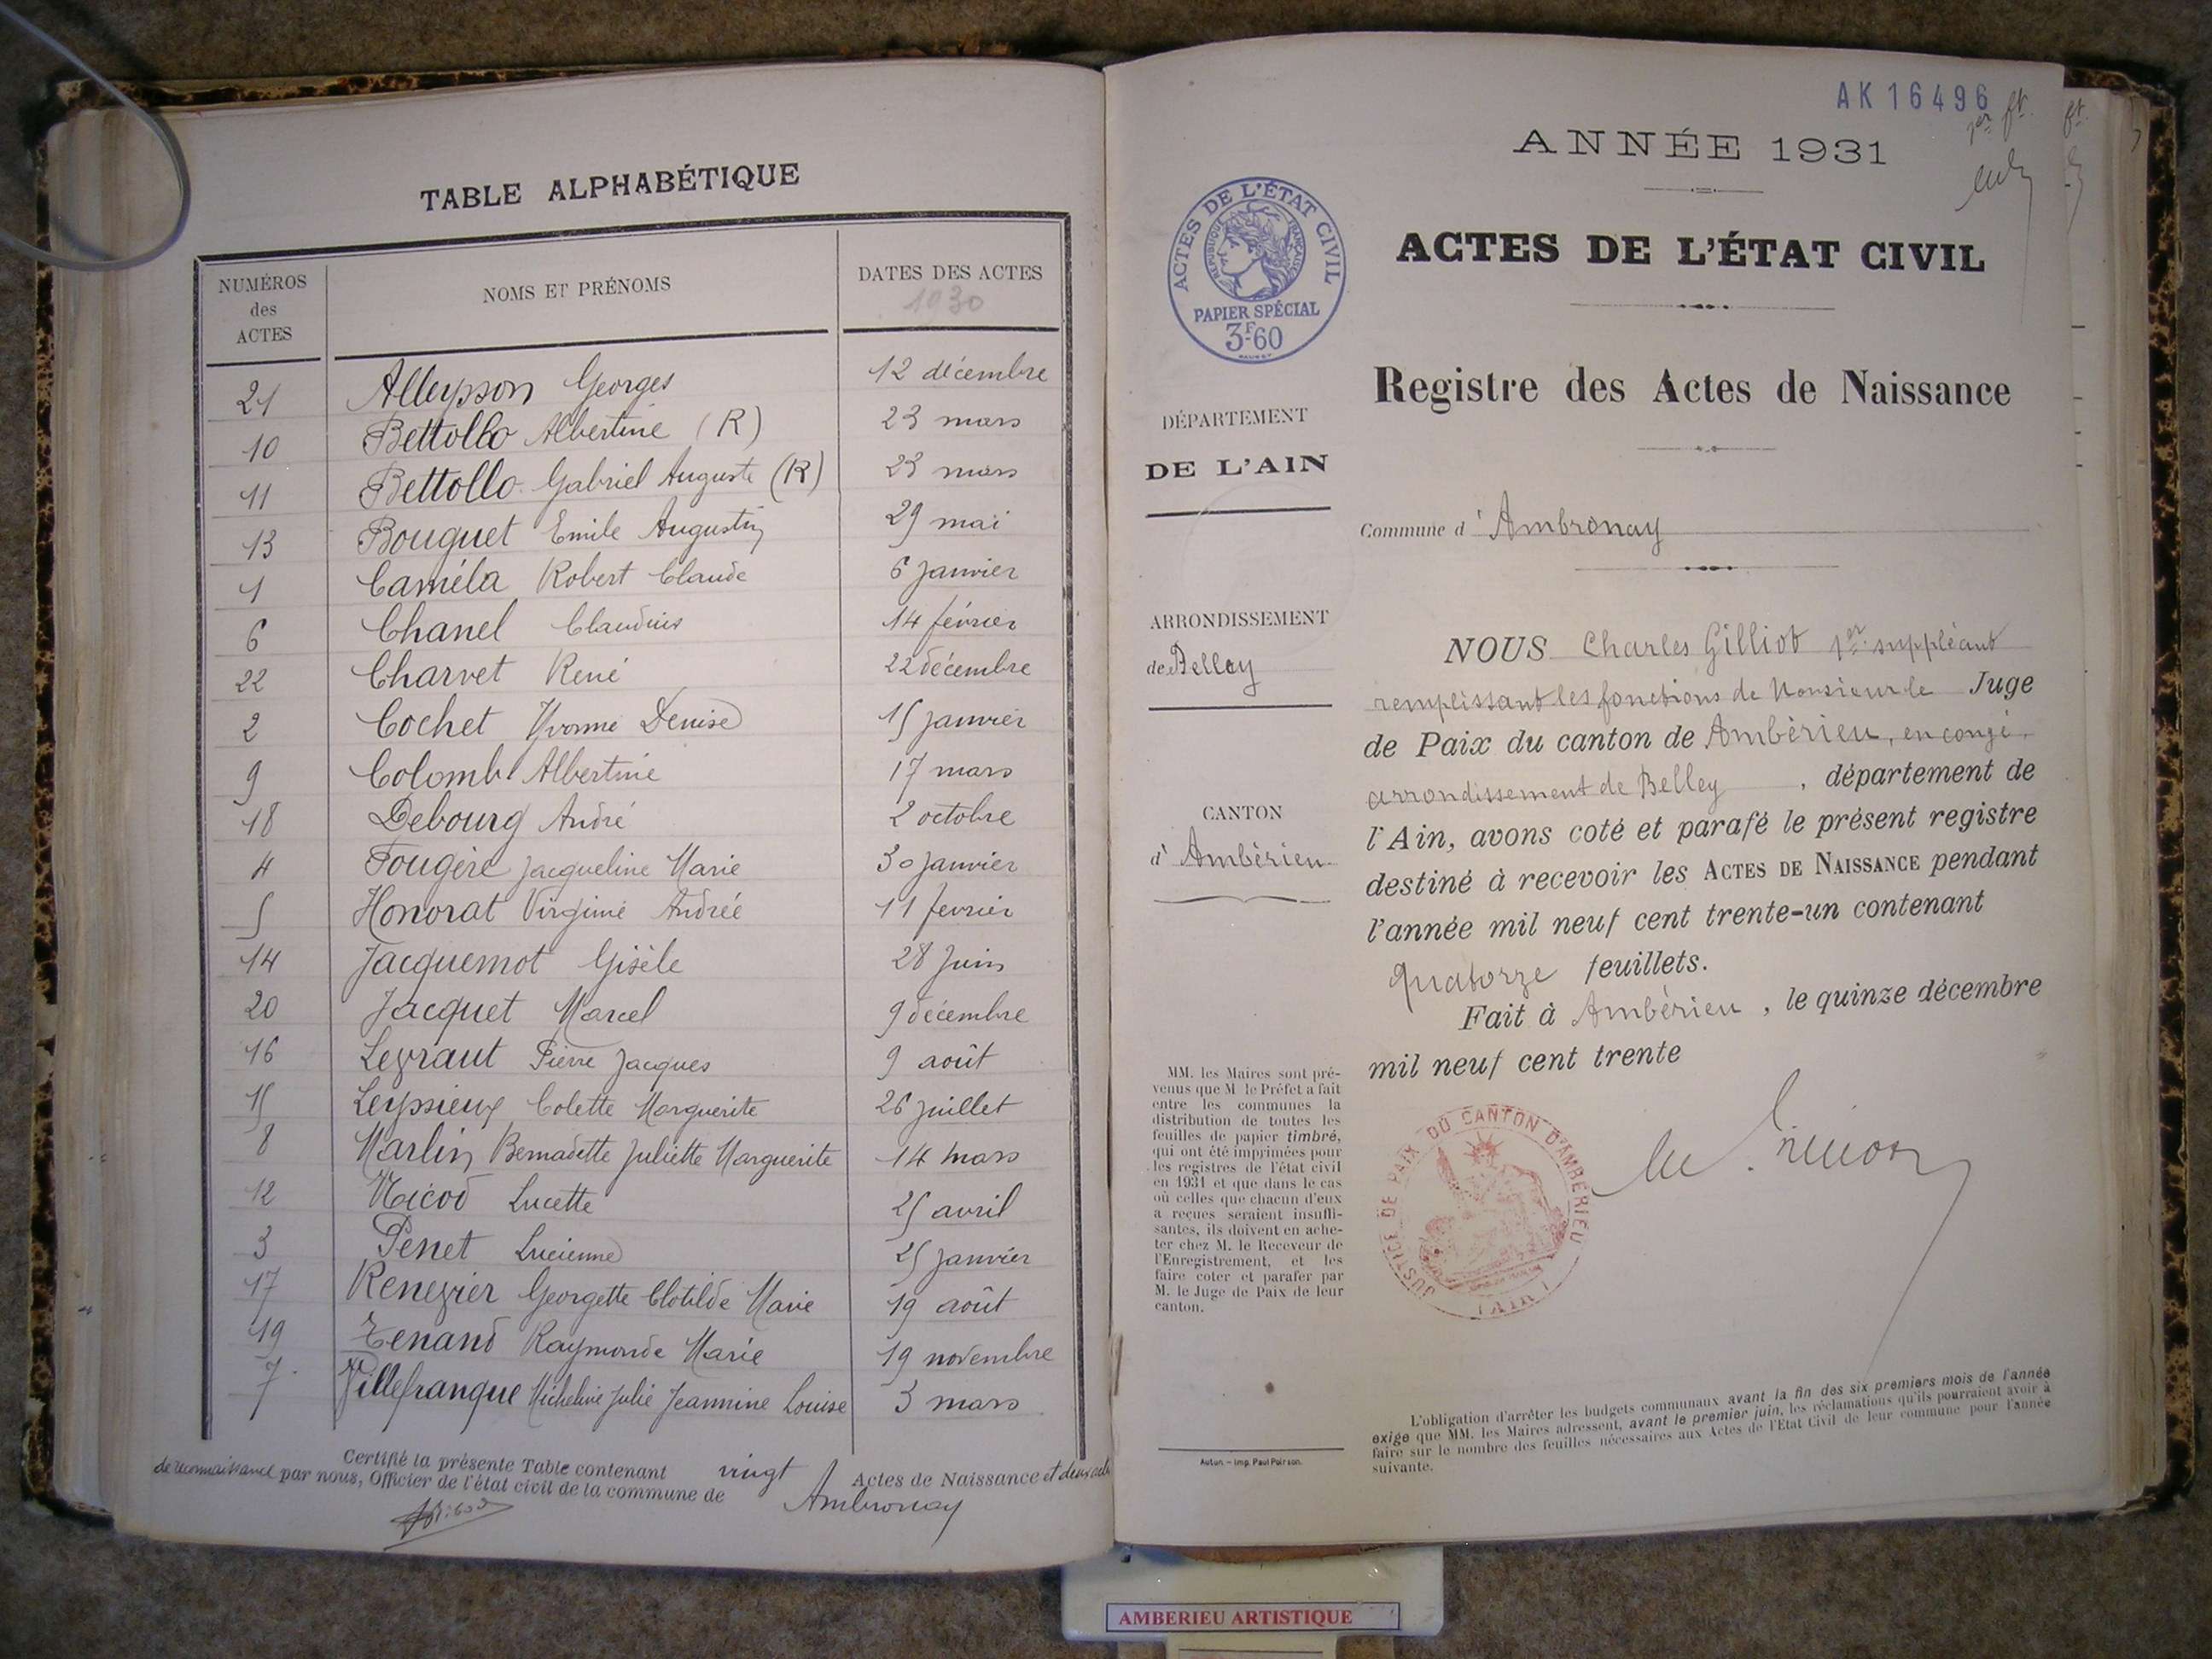 TABLE ALPHABÉTIQUE
NUMÉROS des ACTES
NOMS ET PRÉNOMS
DATES DES ACTES
1930
21 Alleysson Georges 12 décembre
10 Bettollo Albertine (R) 23 mars
11 Bettollo Gabriel Auguste (R) 23 mars
13 Bouquet Emile Augustin 29 mai
1 Caméla Robert Claude 6 janvier
6 Chanel Claudius 14 février
22 Charvet René 22 décembre
2 Cochet Yvonne Denise 15 janvier
9 Colomb Albertine 17 mars
18 Debourg André 2 octobre
4 Fougère Jacqueline Marie 30 janvier
5 Honorat Virginie Andrée 11 février
14 Jacquemot Gisèle 28 juin
20 Jacquet Marcel 9 décembre
16 Levraut Pierre Jacques 9 août
15 Leyssieux Colette Marguerite 26 juillet
8 Marlin Bernadette Juliette Marguerite 14 mars
12 Nicod Lucette 25 avril
3 Penet Lucienne 25 janvier
17 Renevier Georgette Clotilde Marie 19 août
19 Tenand Raymonde Marie 19 novembre
7 Villefranque Micheline Julie Jeannine Louise 3 mars
Certifié la présente Table contenant vingt Actes de Naissance et deux actes
de reconnaissance par nous, Officier de l'état civil de la commune de Ambronay
AK 16496
1er ft.
ft.
ANNÉE 1931
ACTES DE L'ÉTAT CIVIL
RÉPUBLIQUE FRANÇAISE
PAPIER SPÉCIAL
3F60
ACTES DE L'ÉTAT CIVIL
Registre des Actes de Naissance
DÉPARTEMENT
DE L'AIN
Commune d'Ambronay
ARRONDISSEMENT
de Belley
CANTON
d'Ambérieu
NOUS Charles Gilliot 1er suppléant
remplissant les fonctions de Monsieur le Juge
de Paix du canton de Ambérieu, en congé,
arrondissement de Belley, département de
l'Ain, avons coté et parafé le présent registre
destiné à recevoir les ACTES DE NAISSANCE pendant
l'année mil neuf cent trente-un contenant
quatorze feuillets.
Fait à Ambérieu, le quinze décembre
mil neuf cent trente
MM. les Maires sont pré-
venus que M le Préfet a fait
entre les communes la
distribution de toutes les
feuilles de papier timbré,
qui ont été imprimées pour
les registres de l'état civil
en 1931 et que dans le cas
où celles que chacun d'eux
a reçues seraient insuffi-
santes, ils doivent en ache-
ter chez M. le Receveur de
l'Enregistrement, et les
faire coter et parafer par
M. le Juge de Paix de leur
canton.
JUSTICE DE PAIX DU CANTON D'AMBÉRIEU
(AIN)
L'obligation d'arrêter les budgets communaux avant la fin des six premiers mois de l'année
exige que MM. les Maires adressent, avant le premier juin, les réclamations qu'ils pourraient avoir à
faire sur le nombre des feuilles nécessaires aux Actes de l'Etat Civil de leur commune pour l'année
suivante.
Autun. – Imp. Paul Poirson.
AMBERIEU ARTISTIQUE